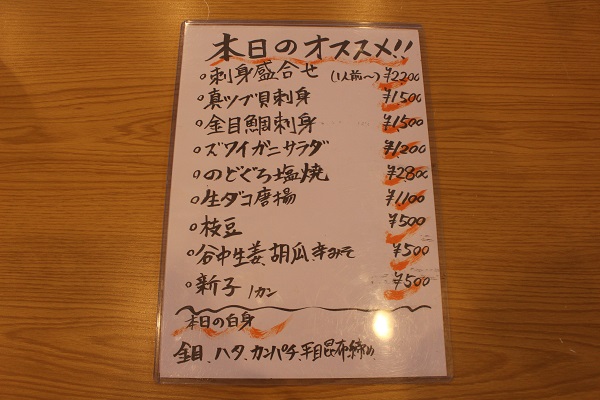 本日のオススメ!!
○刺身盛合せ (1人前〜) ¥2200
○真ツブ貝刺身 ¥1500
○金目鯛刺身 ¥1500
○ズワイガニサラダ ¥1200
○のどぐろ塩焼 ¥2800
○生ダコ唐揚 ¥1100
○枝豆 ¥500
○谷中生姜、胡瓜辛みそ ¥500
○新子 1カン ¥500
本日の白身
金目、ハタ、カンパチ、平目昆布締め